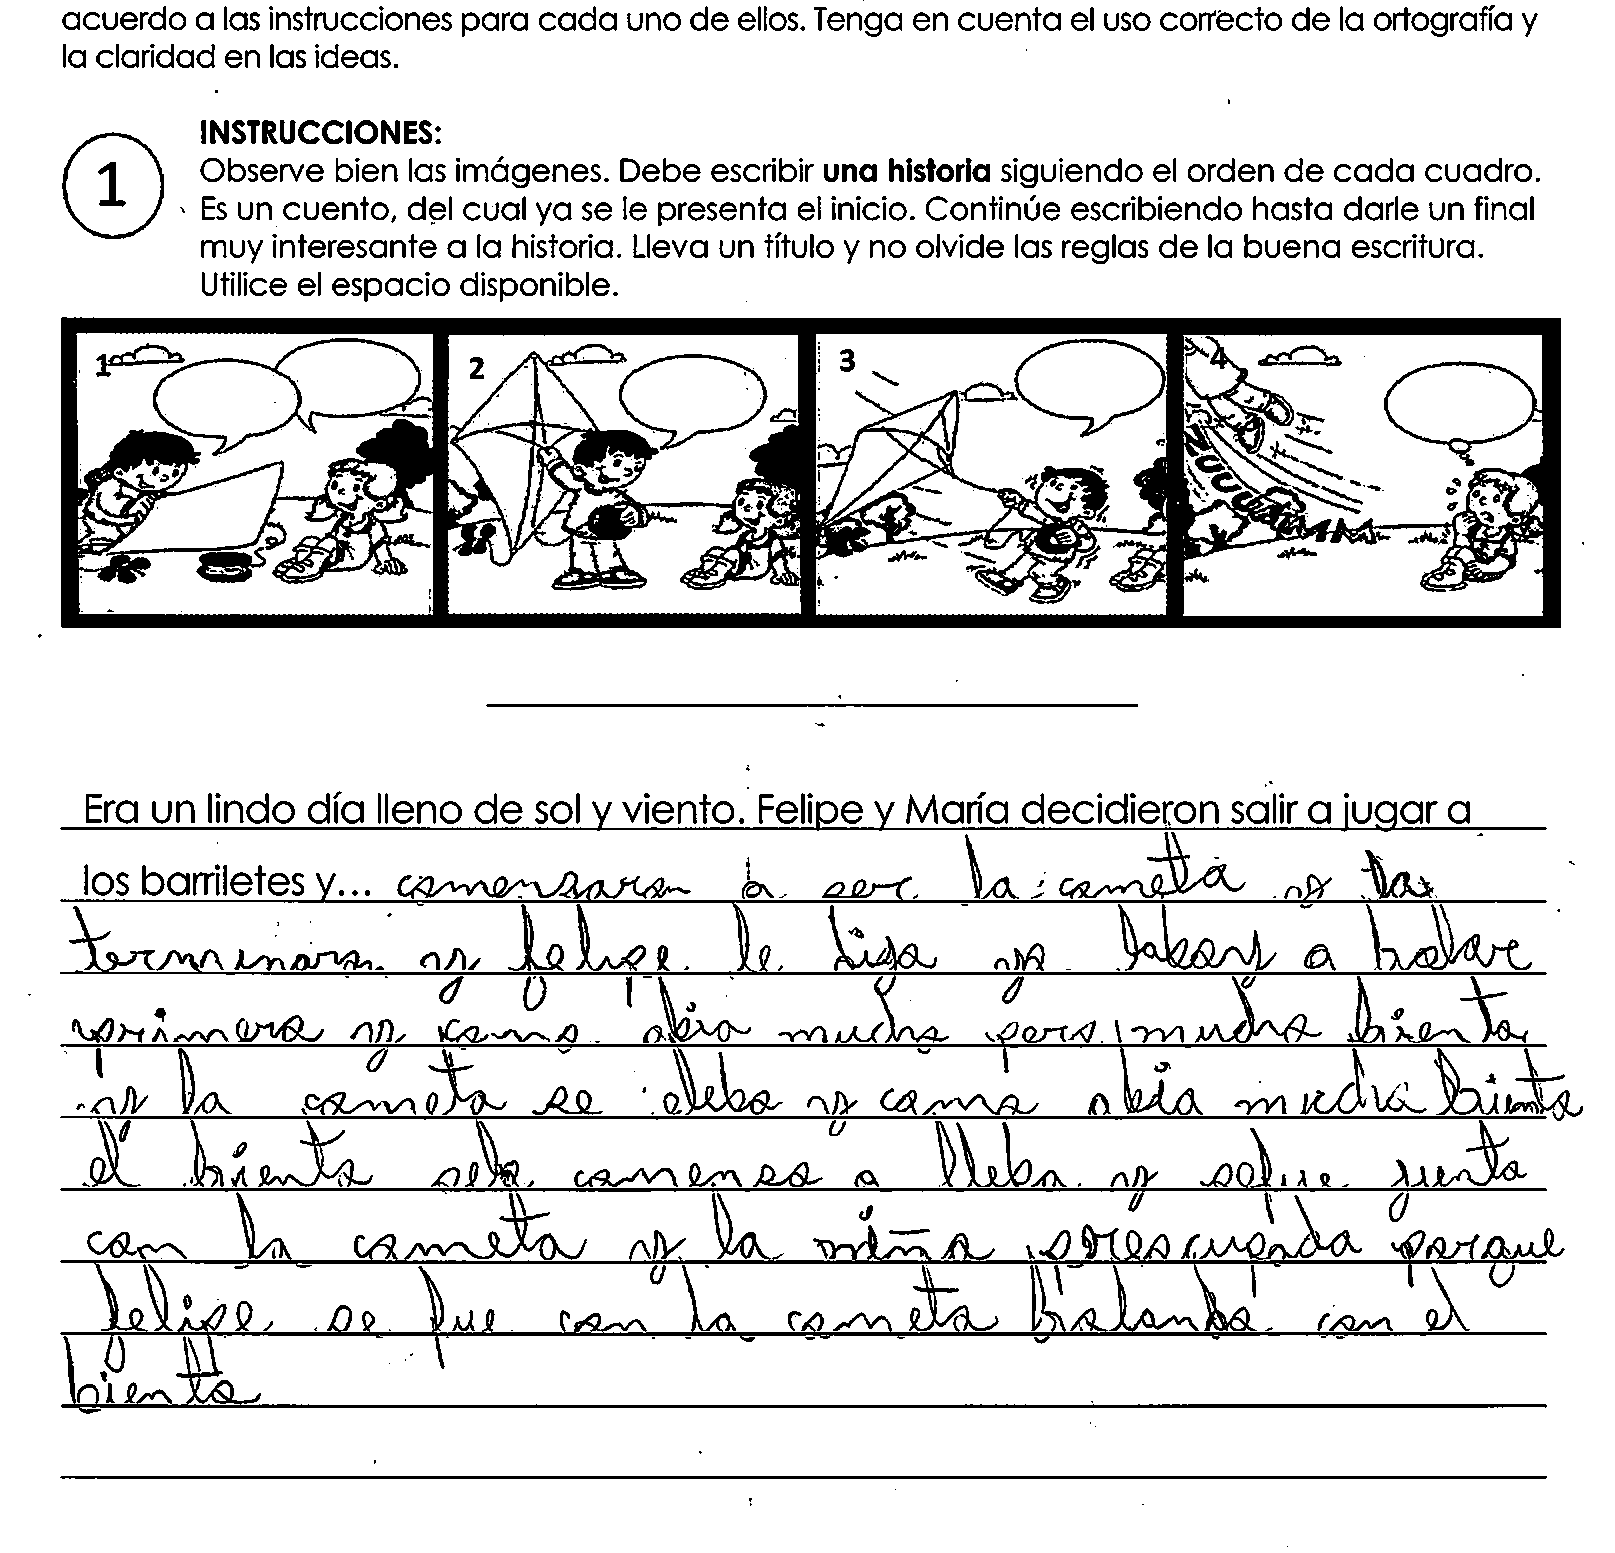 acuerdo a las instrucciones para cada uno de ellos. Tenga en cuenta el uso correcto de la ortografía y
la claridad en las ideas.
INSTRUCCIONES:
1
Observe bien las imágenes. Debe escribir una historia siguiendo el orden de cada cuadro.
Es un cuento, del cual ya se le presenta el inicio. Continúe escribiendo hasta darle un final
muy interesante a la historia. Lleva un título y no olvide las reglas de la buena escritura.
Utilice el espacio disponible.
1
2
3
4
Era un lindo día lleno de sol y viento. Felipe y María decidieron salir a jugar a
los barriletes y... comensaron a ser la cometa y la
terminaron y felipe le diga yo boy a bolar
primero y como abia mucho pero mucho biento
y la cometa se elebo y como abia mucho biento
el biento selo comenso a lleba y felipe junto
con la cometa y la niña preocupada porque
felipe se fue con la cometa bolando con el
biento